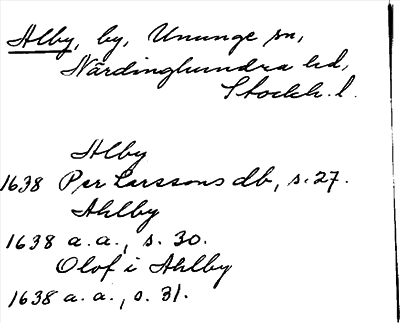 Alby, by, Ununge sn,
Närdinghundra hd,
Stockh. l.
Alby
1638 Per Larssons db, s. 27.
Ahlby
1638 a. a., s. 30.
Olof i Ahlby
1638 a. a., s. 31.